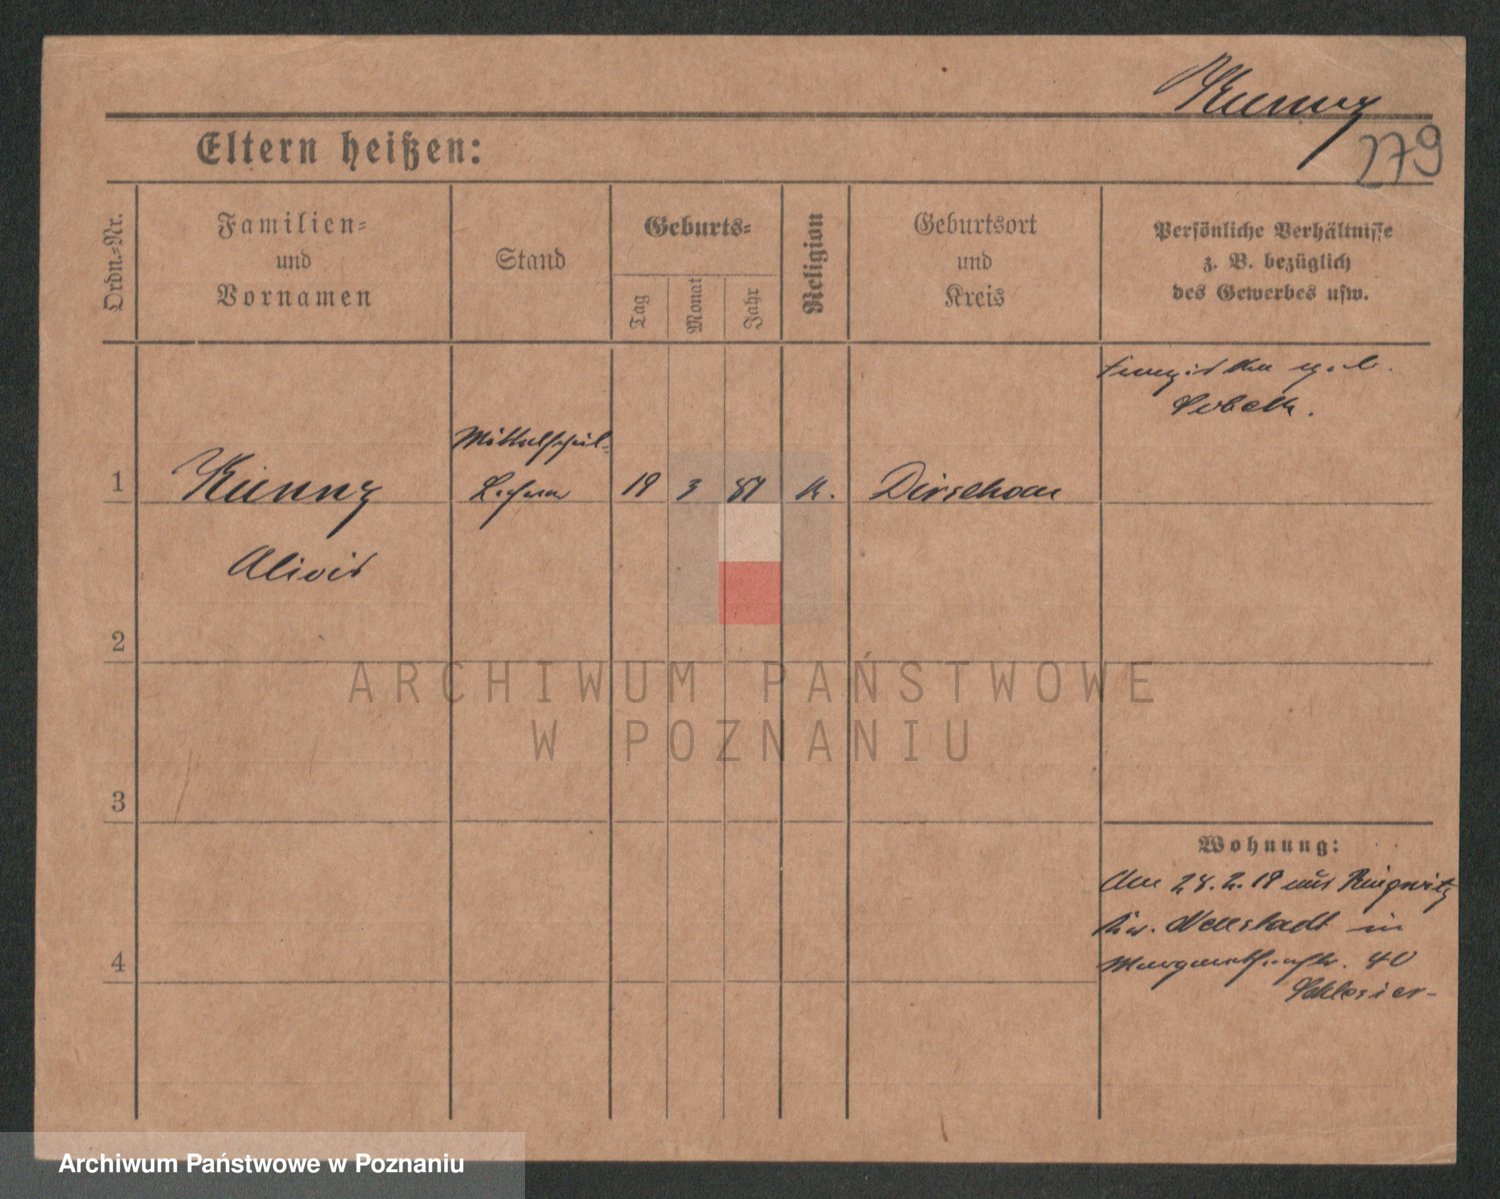 Kunny
279
Eltern heißen:
Ordn.-Nr.
Familien-
und
Vornamen
Stand
Geburts-
Tag
Monat
Jahr
Religion
Geburtsort
und
Kreis
Persönliche Verhältnisse
z. B. bezüglich
des Gewerbes usw.
Mittelschul-
1
Kunny
Lehrer
19
3
k.
Alois
2
3
4
Wohnung:
Am 28.2.19 aus
Kr. Neustadt in
40
ARCHIWUM PAŃSTWOWE
W POZNANIU
Archiwum Państwowe w Poznaniu